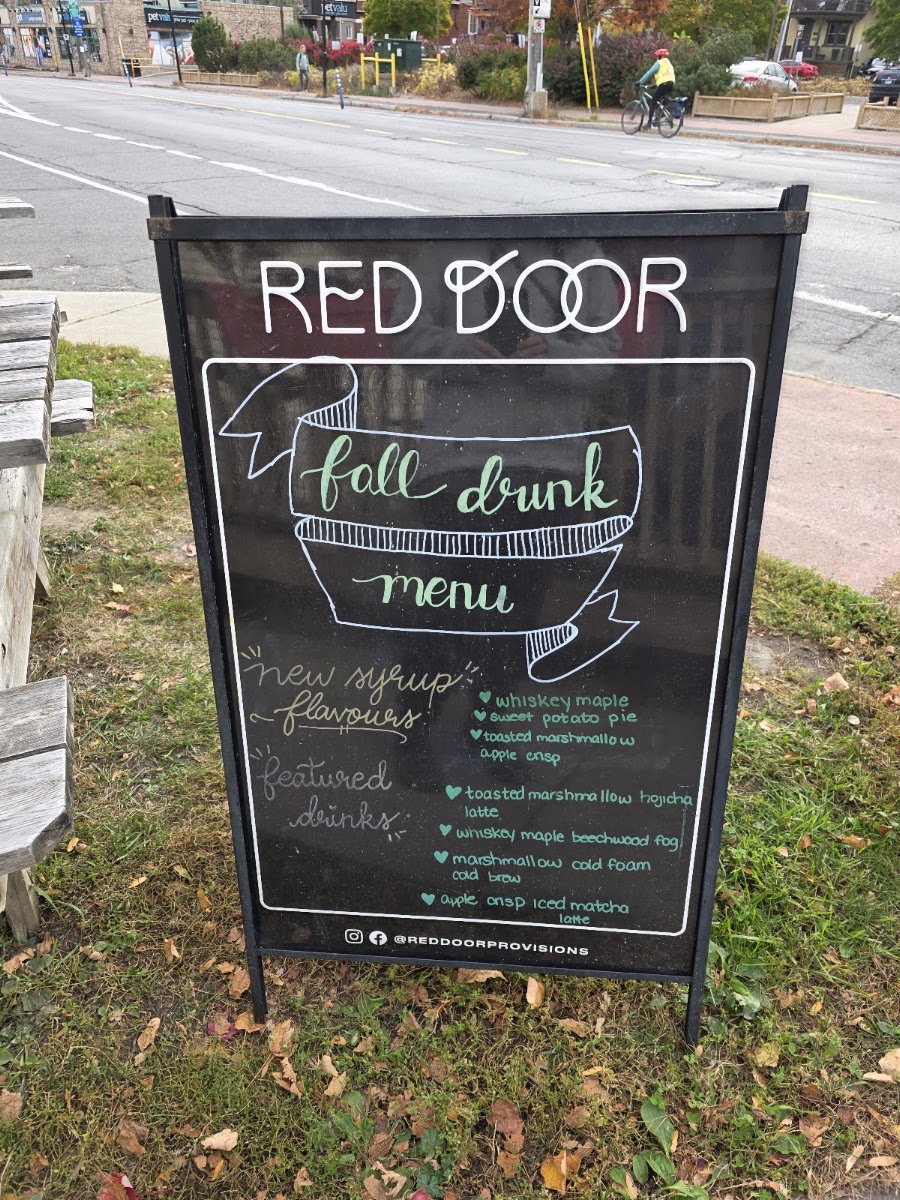 petvalu
petvalu
petvalu
RED DOOR
fall drunk
menu
new syrup
flavours
whiskey maple
sweet potato pie
toasted marshmallow
apple crisp
featured
drinks
toasted marshmallow hojicha
latte
whiskey maple beechwood fog
marshmallow cold foam
cold brew
apple crisp iced matcha
latte
@REDDOORPROVISIONS